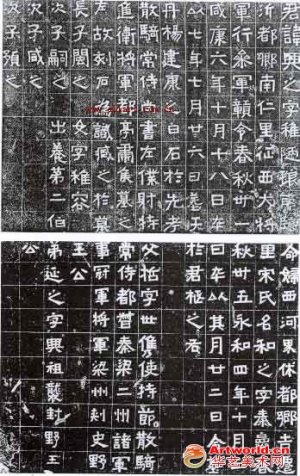 君諱興之字稚陋琅耶
沂都鄉南仁里征西大將
軍行參軍贛令春秋卅一
咸康六年十月十八日卒
以七年七月廿六日葬于
丹楊建康之白石於先考
散騎常侍尚書左僕射特
進衛將軍都亭肅侯墓之
左故刻石為識臧之於墓
長子閩之 女字稚容
次子嗣之 出養第二伯
次子咸之
次子預之
命婦西河界休都鄉吉
里宋氏名和之字秦嬴春
秋卅五永和四年十月
日卒以其月廿二日合
于君柩之右
父哲字世儁使持節散騎
常侍都督秦梁二州諸軍
事冠軍將軍梁州刺史野
王公
弟延之字興祖襲封野王
公
Artworld.cn
华艺美术网